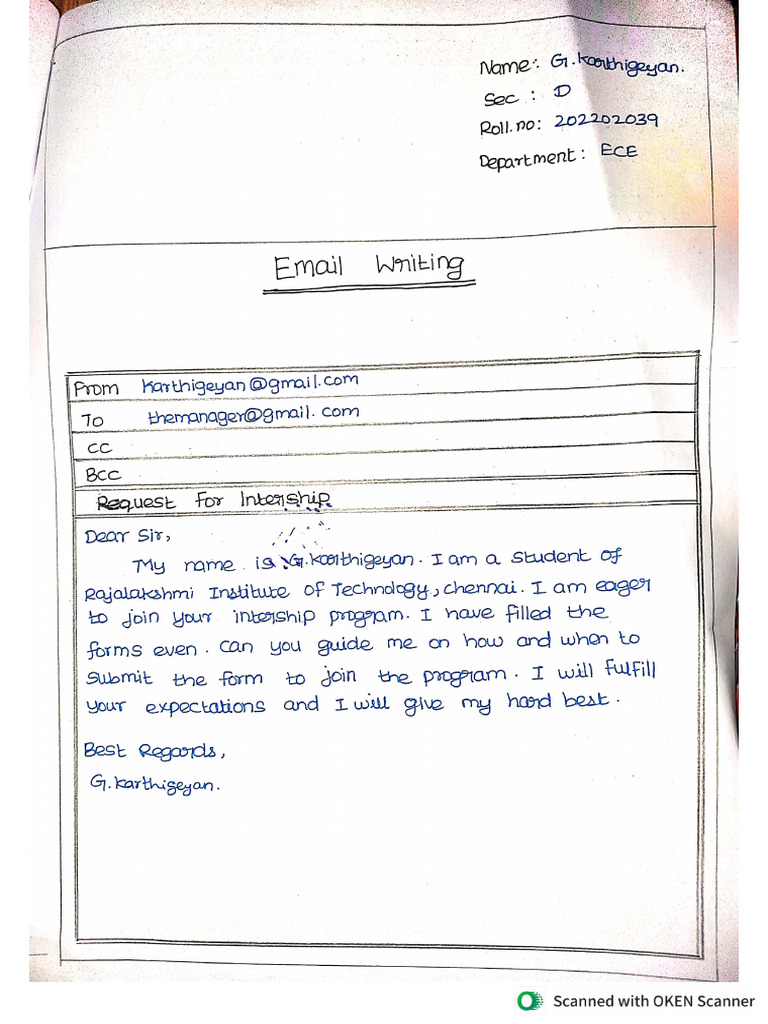 Name: G. Karthigeyan.
Sec : D
Roll.no: 202202039
Department: ECE
Email Writing
From karthigeyan@gmail.com
To themanager@gmail.com
CC
BCC
Request For Intership
Dear Sir,
My name is G.Karthigeyan. I am a student of
Rajalakshmi Institute of Technology, Chennai. I am eager
to join your intership program. I have filled the
forms even. Can you guide me on how and when to
submit the form to join the program. I will fulfill
your expectations and I will give my hard best.
Best Regards,
G.Karthigeyan.
Scanned with OKEN Scanner